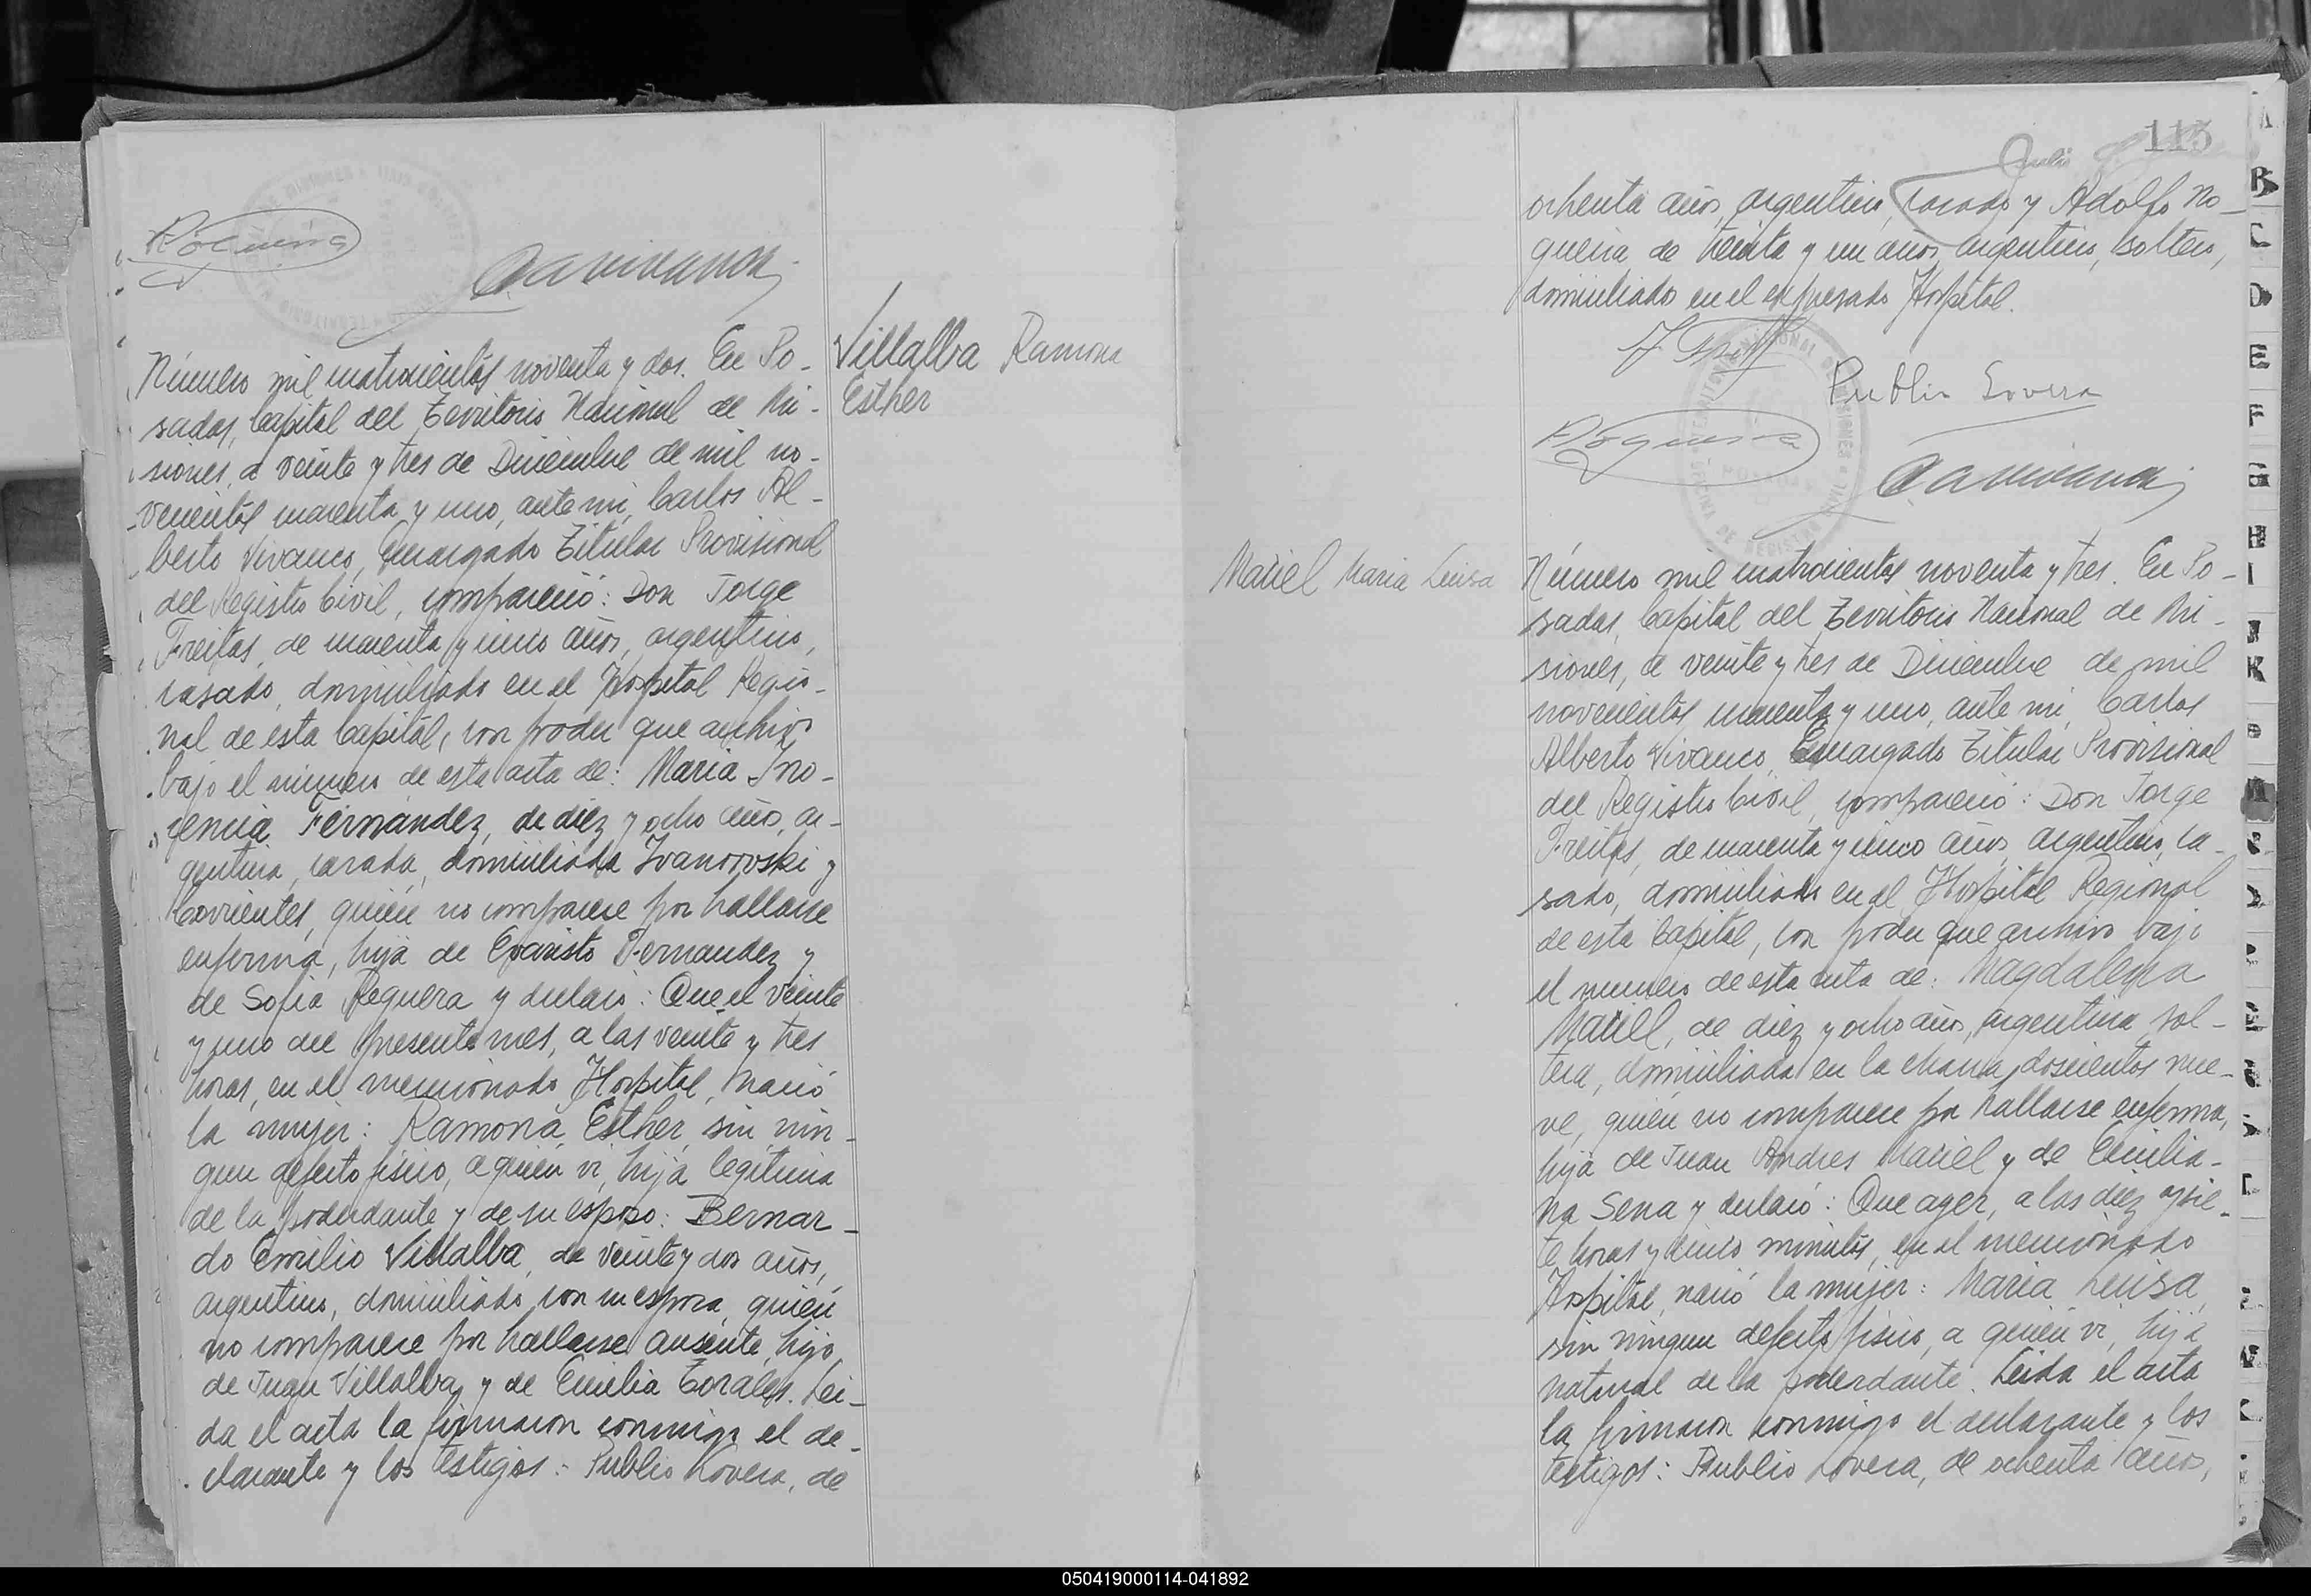 Villalba Ramona
Esther
Número mil cuatrocientos noventa y dos. En Po-
sadas, Capital del Territorio Nacional de Mi-
siones, a veinte y tres de Diciembre de mil no-
vecientos cuarenta y uno, ante mi, Carlos Al-
berto Vivanco, Encargado Titular Provisional
del Registro Civil, compareció: Don Jorge
Freitas, de cuarenta y cinco años, argentino,
casado, domiciliado en el Hospital Regio-
nal de esta Capital, con poder que archivo
bajo el número de esta acta de: Maria Ino-
cencia Fernández, de diez y ocho años, ar-
gentina, casada, domiciliada Ivanovski y
Corrientes, quién no comparece por hallarse
enferma, hija de Evaristo Fernandez y
de Sofia Requera y declaró: Que el veinte
y uno del presente mes, a las veinte y tres
horas, en el mencionado Hospital, nació
la mujer: Ramona Esther, sin nin-
gun defecto fisico, a quién vi, hija legitima
de la poderdante y de su esposo: Bernar-
do Emilio Villalba, de veinte y dos años,
argentino, domiciliado con su esposa, quién
no comparece por hallarse ausente, hijo
de Juan Villalba y de Emilia Torales. Lei-
da el acta la firmaron conmigo el de-
clarante y los testigos: Publio Lovera, de
115
ochenta años, argentino, casado y Adolfo No-
gueira de treinta y un años, argentino, soltero,
domiciliado en el expresado Hospital.
Publio Lovera
Maciel Maria Luisa
Número mil cuatrocientos noventa y tres. En Po-
sadas, Capital del Territorio Nacional de Mi-
siones, a veinte y tres de Diciembre de mil
novecientos cuarenta y uno, ante mi, Carlos
Alberto Vivanco, Encargado Titular Provisional
del Registro Civil, compareció: Don Jorge
Freitas, de cuarenta y cinco años, argentino, ca-
sado, domiciliado en el Hospital Regional
de esta Capital, con poder que archivo bajo
el número de esta acta de: Magdalena
Maciel, de diez y ocho años, argentina, sol-
tera, domiciliada en la chacra doscientos nue-
ve, quién no comparece por hallarse enferma,
hija de Juan Andres Maciel y de Emilia-
na Sena y declaró: Que ayer, a las diez y sie-
te horas y cinco minutos, en el mencionado
Hospital, nació la mujer: Maria Luisa,
sin ningun defecto fisico, a quién vi, hija
natural de la poderdante. Leida el acta
la firmaron conmigo el declarante y los
testigos: Publio Lovera, de ochenta años,
B
C
D
E
F
G
H
I
K
050419000114-041892